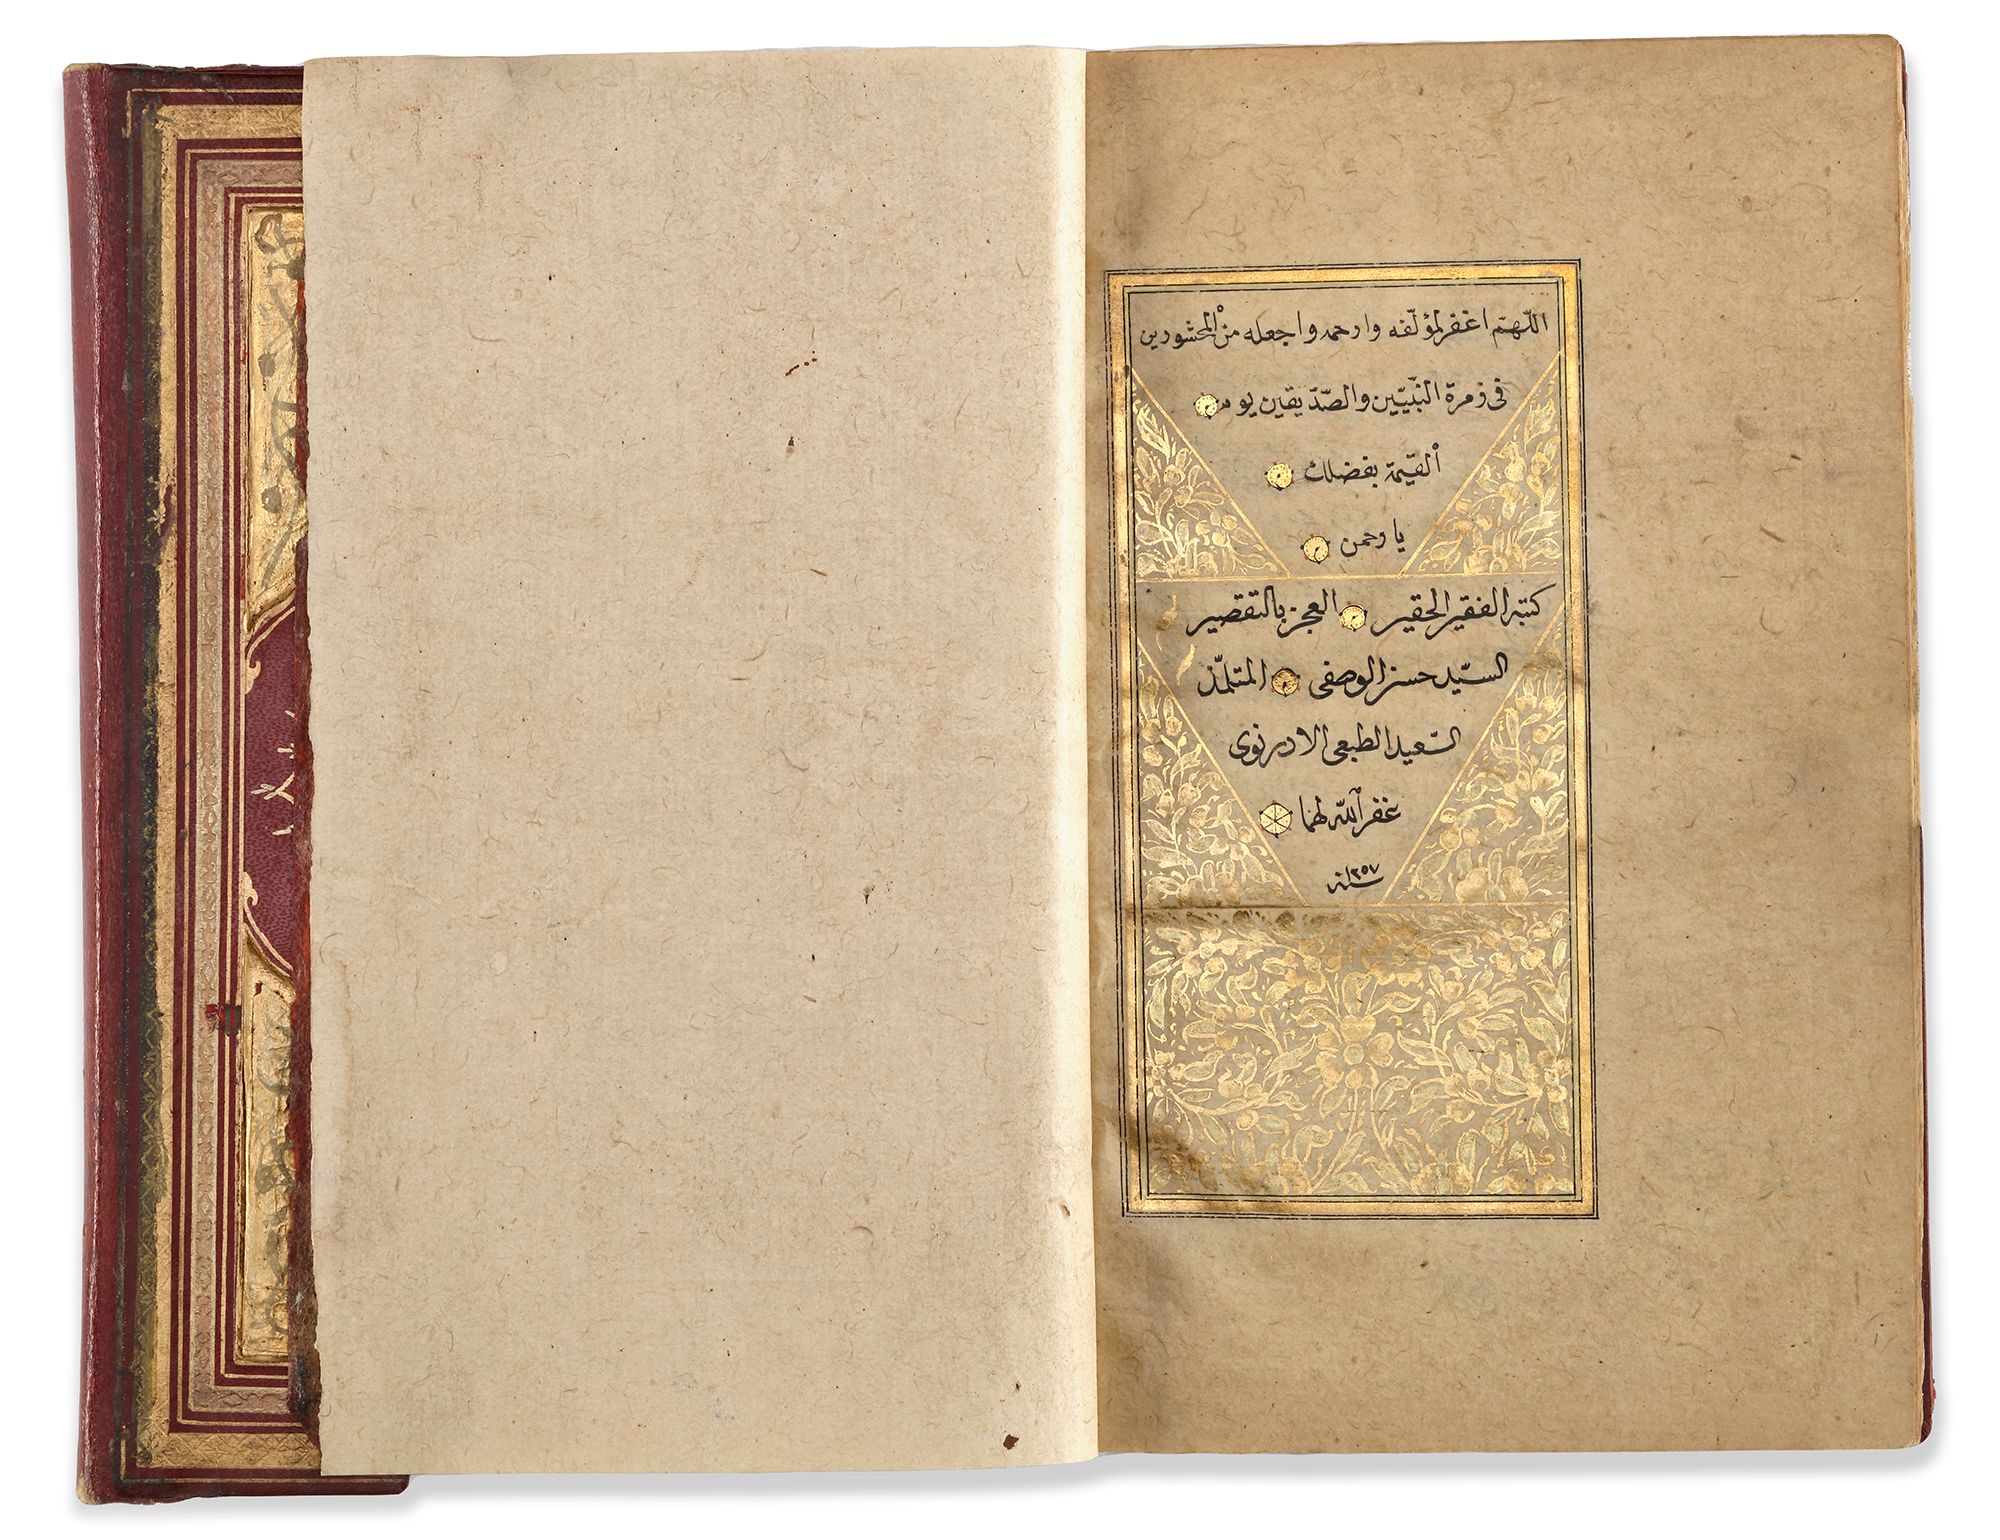 اللّهمّ اغفر لمؤلّفه وارحمه واجعله من المحشورين
فى زمرة النّبيّين والصّدّيقين يوم
القيمة بفضلك
يا رحمن
كتبه الفقير الحقير العجز بالتقصير
السيّد حسن الوصفى المتلمّذ
السّعيد الطبعى الادرنوى
غفر الله لهما
سنه ١٢٥٧